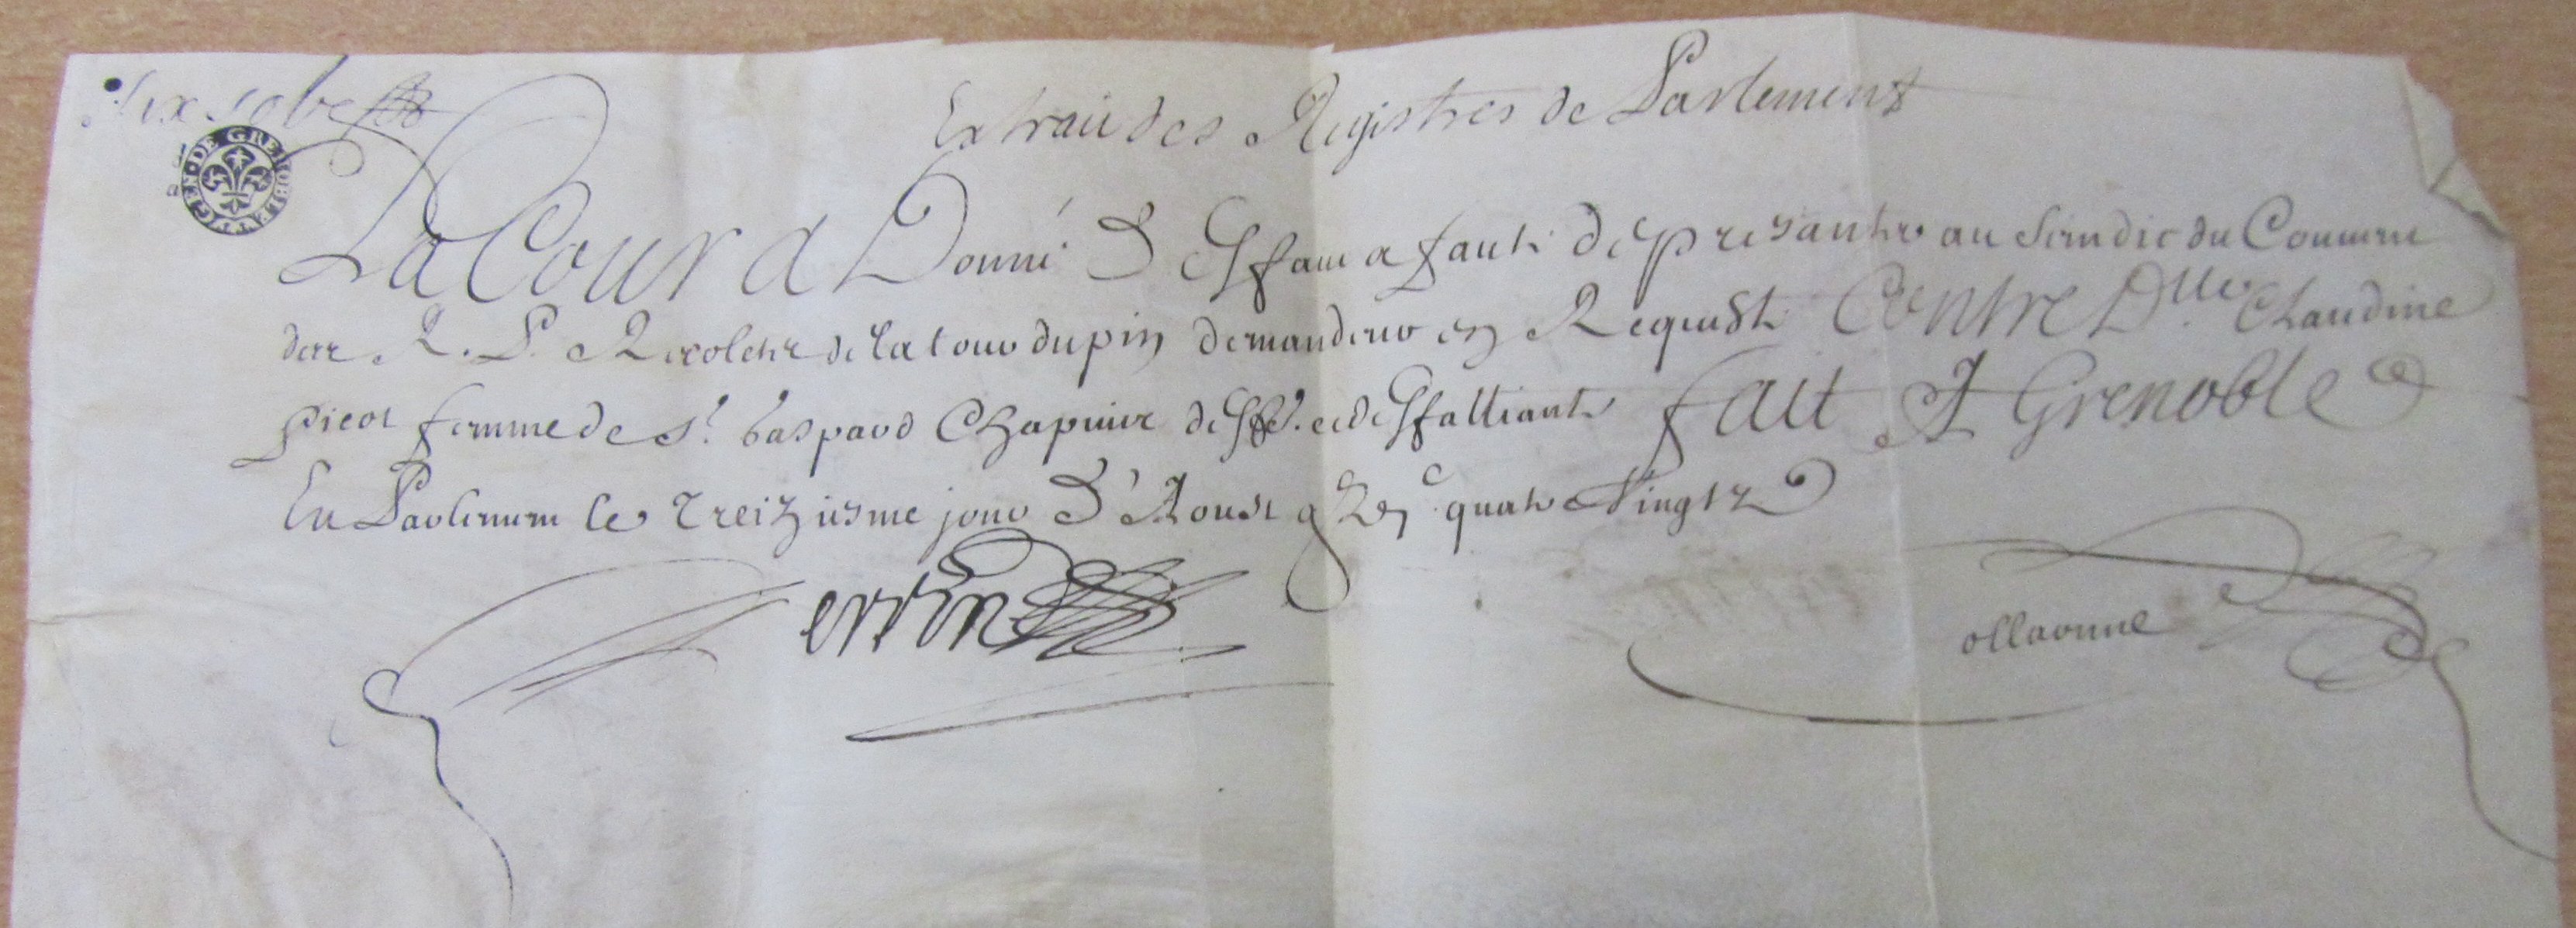 Six solz
GEN · DE GRENOBLE
Extrait des Registres de Parlement
La Cour a Donné Deffaut a faute de presanter au sindic du Couvent
des R. P. Recoletz de la tour du pin demandeur en Requeste Contre Dlle Claudine
picot femme de Sr. Gaspard Chapuis deffer. et deffalliante fait A Grenoble
En Parlement le treiziesme jour D'Aoust quatre Vingtz
Perrin
ollaonne